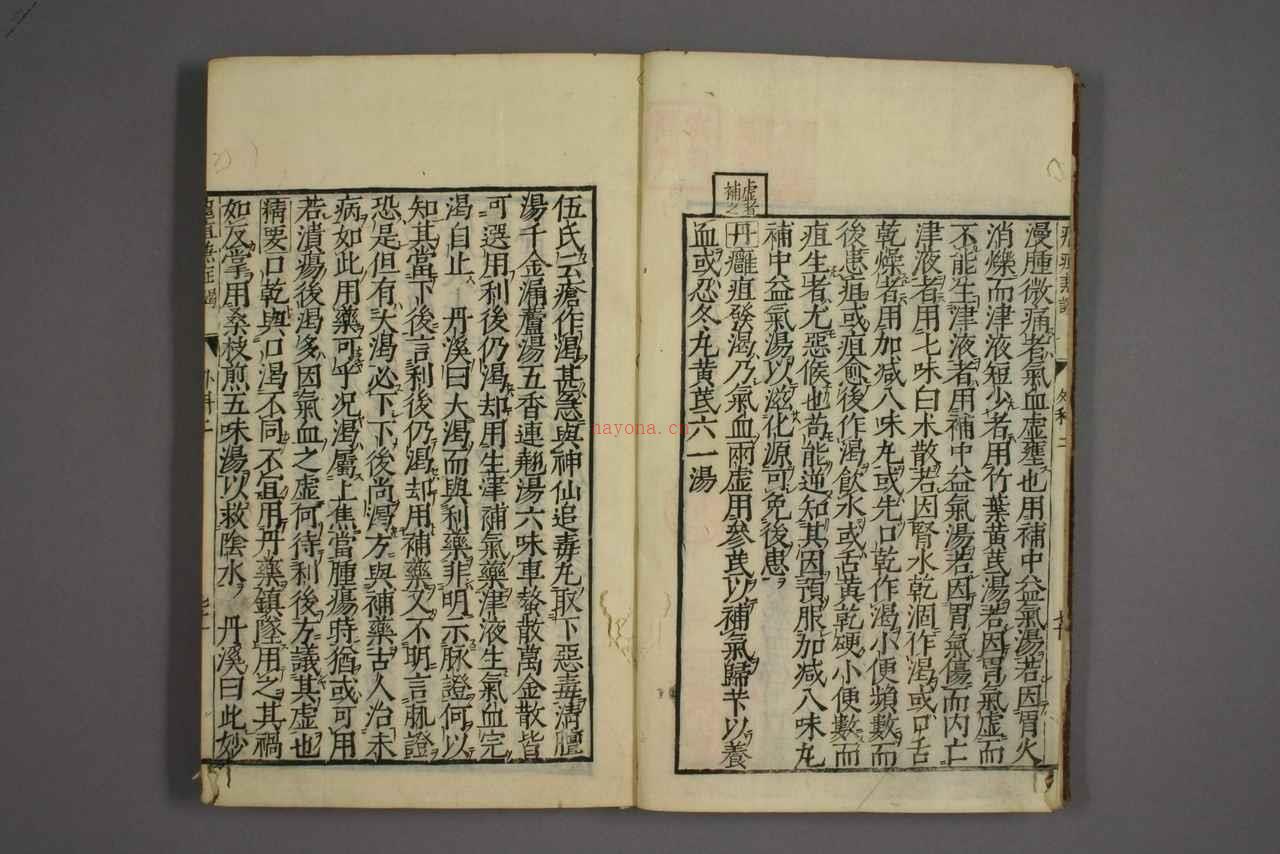 漫腫微痛者氣血虛壅也用補中益氣湯若因胃火
消爍而津液短少者用竹葉黃芪湯若因胃氣虛而
不能生津液者用補中益氣湯若因胃氣傷而内亡
津液者用七味白朮散若因腎水乾涸作渴或口舌
乾燥者用加减八味丸或先口乾作渴小便頻數而
後患疽或疽愈後作渴飲水或舌黃乾硬小便數而
疽生者尤惡候也苟能逆知其因預服加减八味丸
補中益氣湯以滋化源可免後患
虛者補之
丹癰疽發渴乃氣血兩虛用參芪以補氣歸芐以養
血或忍冬丸黄芪六一湯
伍氏云瘡作渴甚急與神仙追毒丸取下惡毒清膻
湯千金漏蘆湯五香連翹湯六味車螯散萬金散皆
可選用利後仍渴却用生津補氣藥津液生氣血完
渴自止 丹溪曰大渴而與利藥非明示脉證何以
知其當下後言利後仍渴却用補藥又不明言脉證
恐是但有大渴必下下後尚渴方與補藥古人治未
病如此用藥可乎况渴屬上焦當腫瘍時猶或可用
若潰瘍後渴多因氣血之虛何待利後方議其虛也
精要口乾與口渴不同不宜用丹藥鎮墜用之其禍
如反掌用桑枝煎五味湯以救陰水 丹溪曰此妙
外科二
nayona.cn